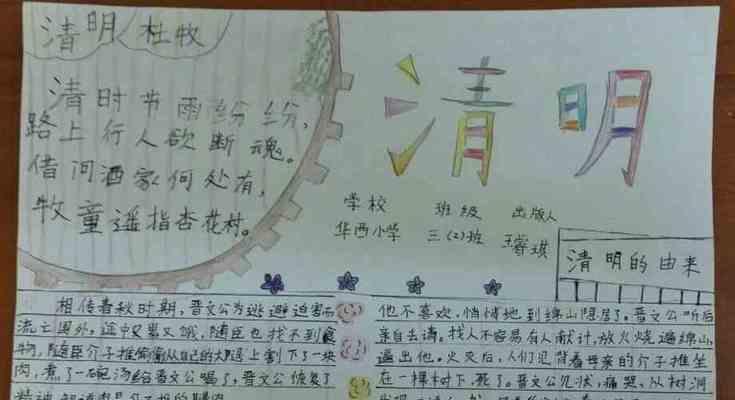 清明 杜牧
清时节雨纷纷,
路上行人欲断魂。
借问酒家何处有,
牧童遥指杏花村。
清明
学校 班级 出版人
华西小学 三(2)班 王睿琪
清明的由来
相传春秋时期,晋文公为逃避迫害而
流亡国外,途中又累又饿,随臣也找不到食
物,随臣介子推偷偷从自己的大腿上割下了一块
肉,煮了一碗汤给晋文公喝了,晋文公恢复了
精神
他不喜欢,悄悄地到绵山隐居了。晋文公听后
亲自去请。找人不容易有人献计,放火烧遍绵山,
逼出他。火灭后,人们见背着母亲的介子推坐
在一棵树下,死了。晋文公见状,痛哭、从树洞